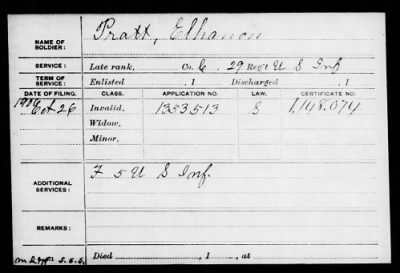 NAME OF SOLDIER: Pratt, Elhanon
SERVICE: Late rank, Co. C, 29 Reg't U S Inf
TERM OF SERVICE: Enlisted , 1 Discharged , 1
DATE OF FILING. CLASS. APPLICATION NO. LAW. CERTIFICATE NO.
Oct 26 Invalid, 1353513 S 1,148,074
Widow,
Minor,
ADDITIONAL SERVICES: F 5 U S Inf.
REMARKS:
Died , 1 , at